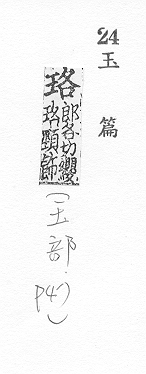 24
玉篇
珞郎各切纓珞頸飾
（玉部．P47）